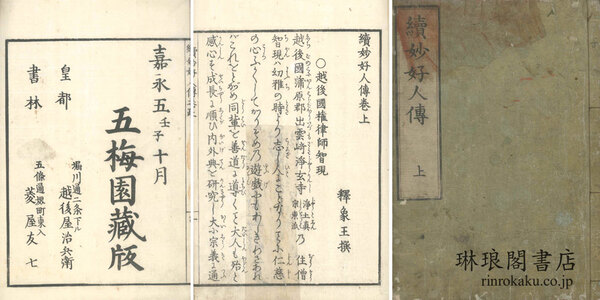 續妙好人傳 上
續妙好人傳卷上
釋象王撰
○越後國權律師智現
越後國蒲原郡出雲﨑淨玄寺 淨土真宗東派 乃住僧
智現ハ幼雅の時より
仁慈
の心ふかくして
遊戯
同輩と善道に導くを大人も殆と
感心を成長に順ひ内外典と研究し大尓宗義を通
嘉永五壬子十月
五梅園藏版
皇都
書林
堀川通二条下ル
越後屋治兵衞
五條通堺町東入
菱屋友七
琳琅閣書店
rinrokaku.co.jp